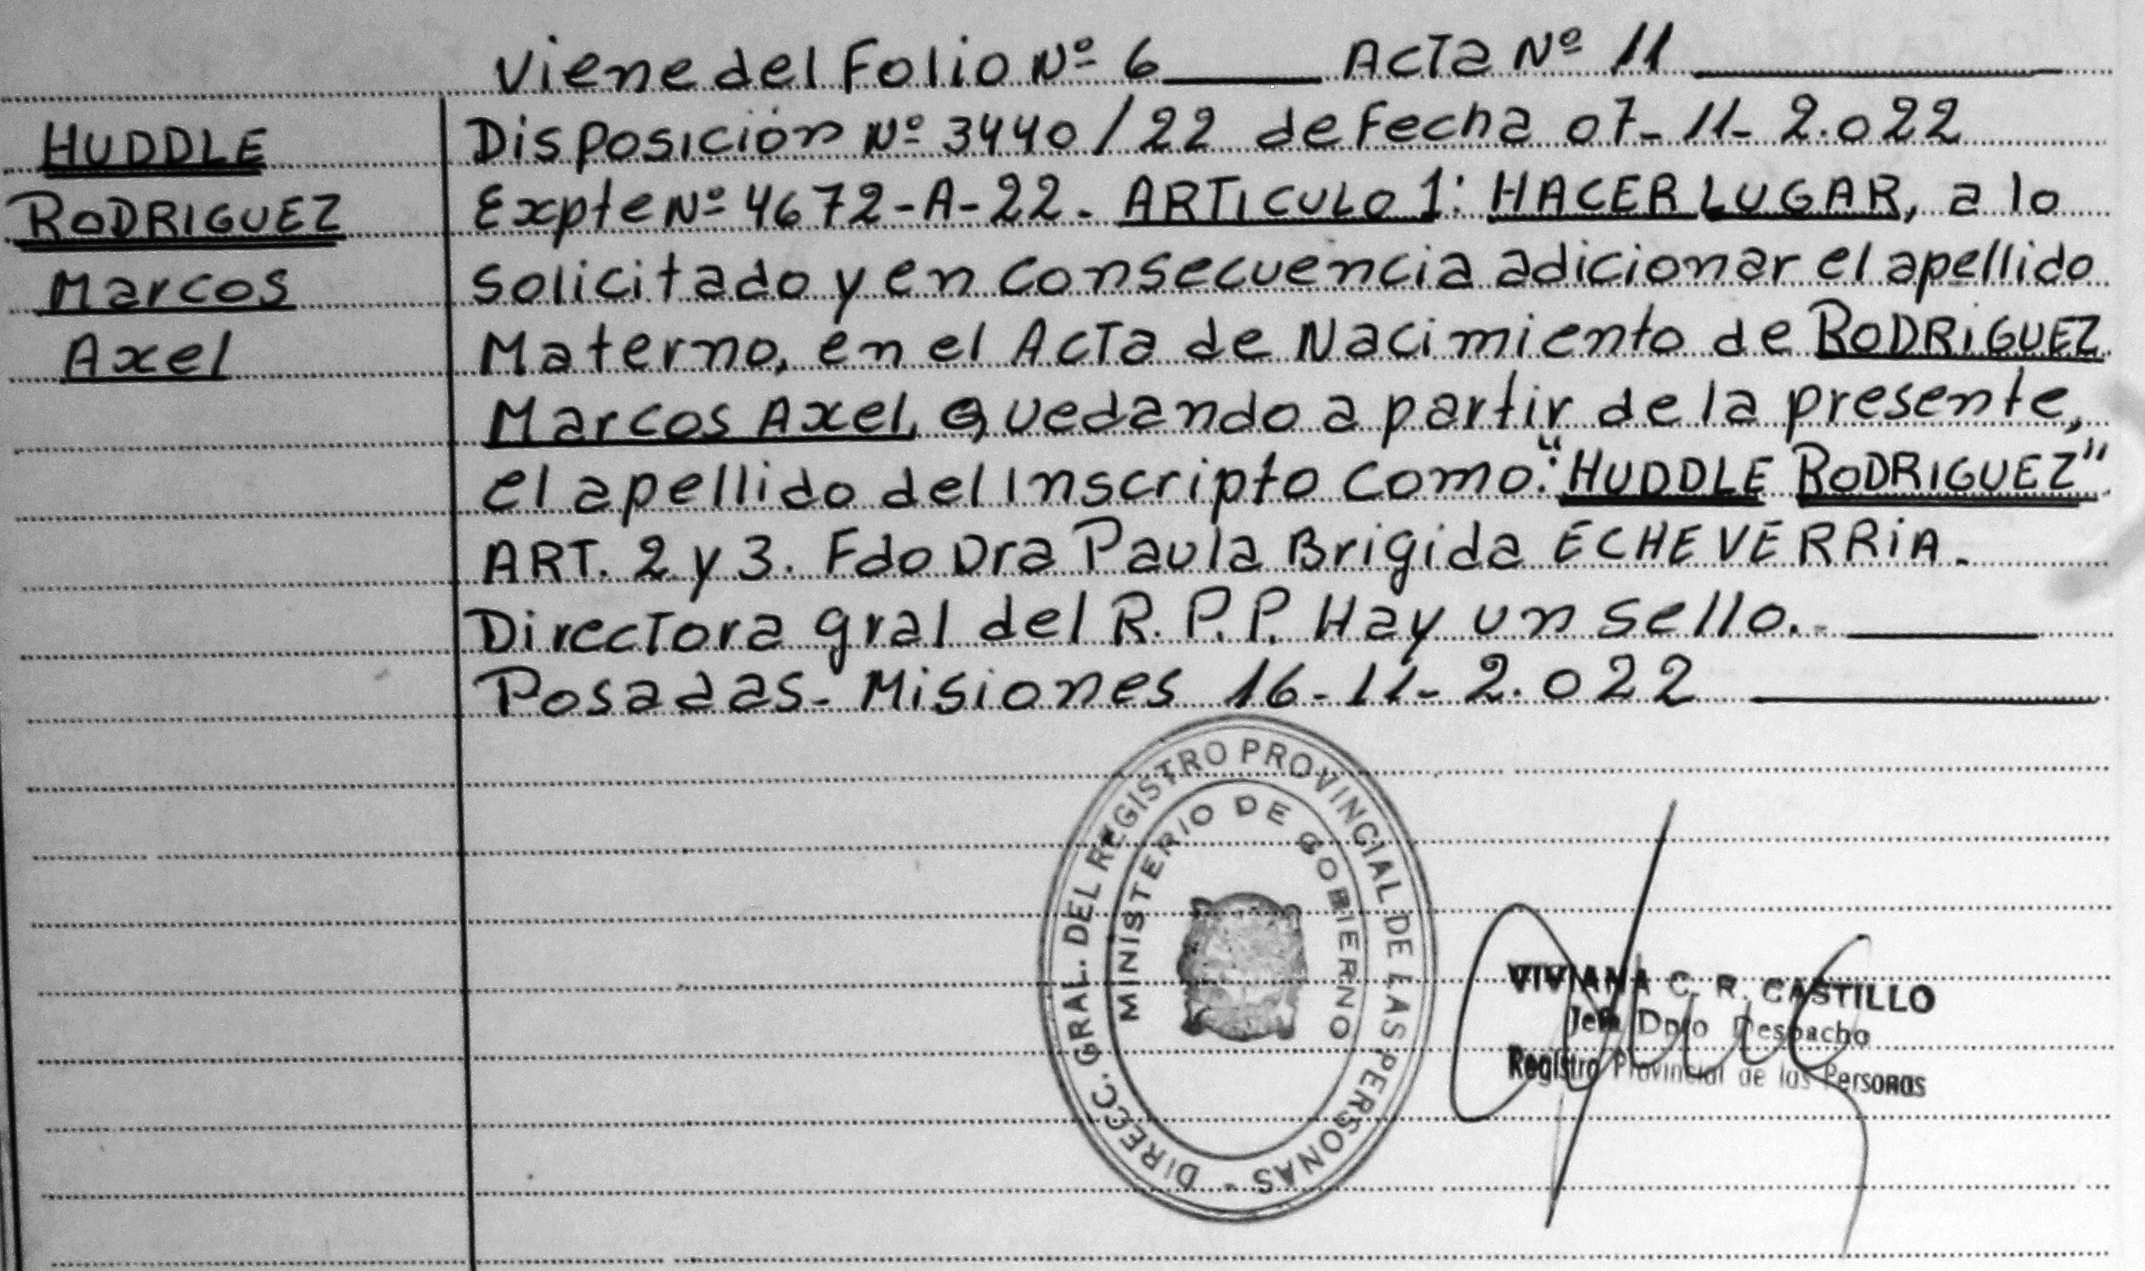 Viene del Folio Nº 6 ACTa Nº 11
HUDDLE
RODRIGUEZ
Marcos
Axel
Disposición Nº 3440/22 de Fecha 07-11-2.022
Expte Nº 4672-A-22. ARTICULO 1: HACER LUGAR, a lo
solicitado y en consecuencia adicionar el apellido
Materno, en el ACTa de Nacimiento de RODRIGUEZ
Marcos Axel, Quedando a partir de la presente,
el apellido del Inscripto como: "HUDDLE RODRIGUEZ"
ART. 2 y 3. Fdo Dra Paula Brigida ECHEVERRiA.
Directora gral del R.P.P. Hay un sello.
Posadas- Misiones 16-11-2.022
DIRECC. GRAL. DEL REGISTRO PROVINCIAL DE LAS PERSONAS -
MINISTERIO DE GOBIERNO
VIVIANA C. R. CASTILLO
Jefa Dpto Despacho
Registro Provincial de las Personas